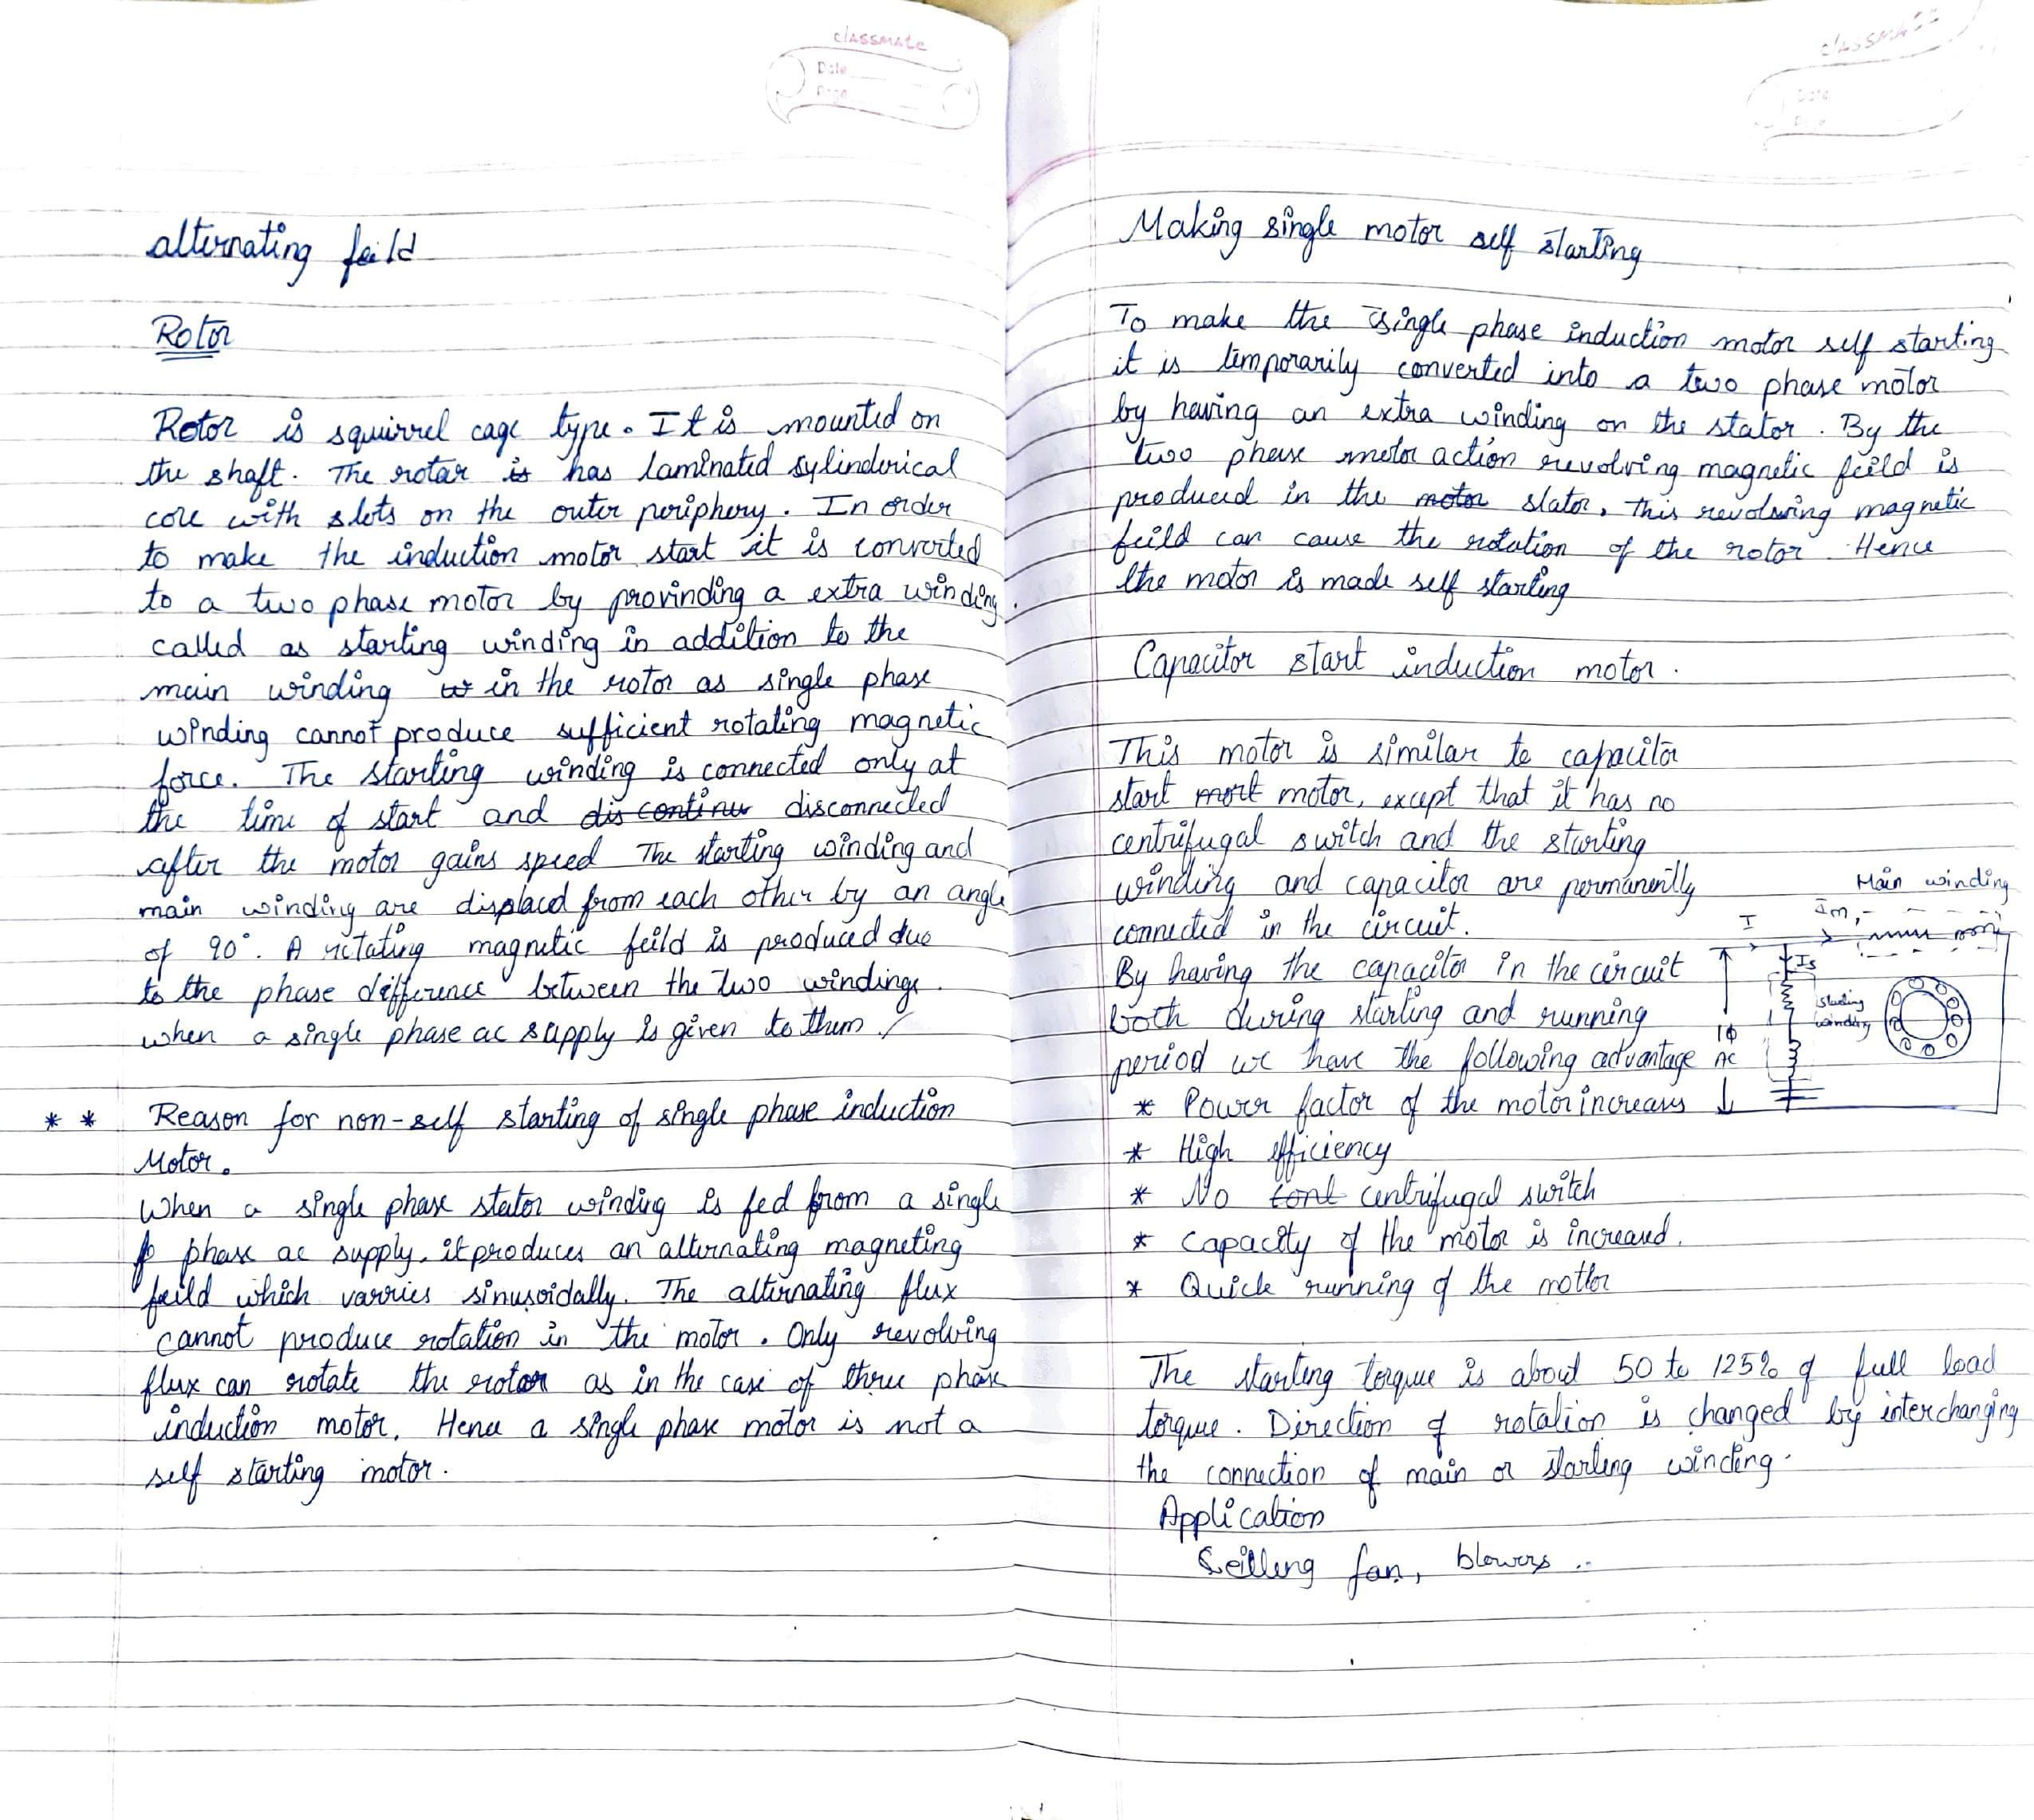 classmate
Date
Page
alternating feild
Rotor
Rotor is squirrel cage type. It is mounted on
the shaft. The rotar is has laminated sylinderical
core with slots on the outer periphery. In order
to make the induction motor start it is converted
to a two phase motor by provinding a extra winding.
called as starting winding in addition to the
main winding in the rotor as single phase
winding cannot produce sufficient rotating magnetic
force. The starting winding is connected only at
the time of start and dis continu disconnected
after the motor gains speed The starting winding and
main winding are displacd from each other by an angle
of 90°. A rotating magnetic feild is produced due
to the phase difference between the two windings.
when a single phase ac supply is given to them.
* * Reason for non-self starting of single phase induction
Motor.
When a single phase stator winding is fed from a single
phase ac supply. it produces an alternating magneting
feild which varries sinusoidally. The alternating flux
cannot produce rotation in the motor. Only revolving
flux can rotate the rotor as in the case of three phase
induction motor. Hence a single phase motor is not a
self starting motor.
classmate
Date
Page
Making single motor self starting
To make the single phase induction motor self starting
it is temporarily converted into a two phase motor
by having an extra winding on the stator. By the
two phase motor action revolving magnetic feild is
produced in the motor stator. This revolving magnetic
feild can cause the rotation of the rotor. Hence
the motor is made self starting
Capacitor start induction motor.
This motor is similar to capacitor
start mort motor, except that it has no
centrifugal switch and the starting
winding and capacitor are permanently
connected in the circuit.
By having the capacitor in the circuit
both during starting and running
period we have the following advantage
* Power factor of the motor increases
* High efficiency
* No cent centrifugal switch
* Capacity of the motor is increased.
* Quick running of the motor
Main winding
I
Im
Is
starting
winding
1ϕ
AC
The starting torque is about 50 to 125% of full load
torque. Direction of rotation is changed by interchanging
the connection of main or starting winding.
Application
Ceilling fan, blowers ..